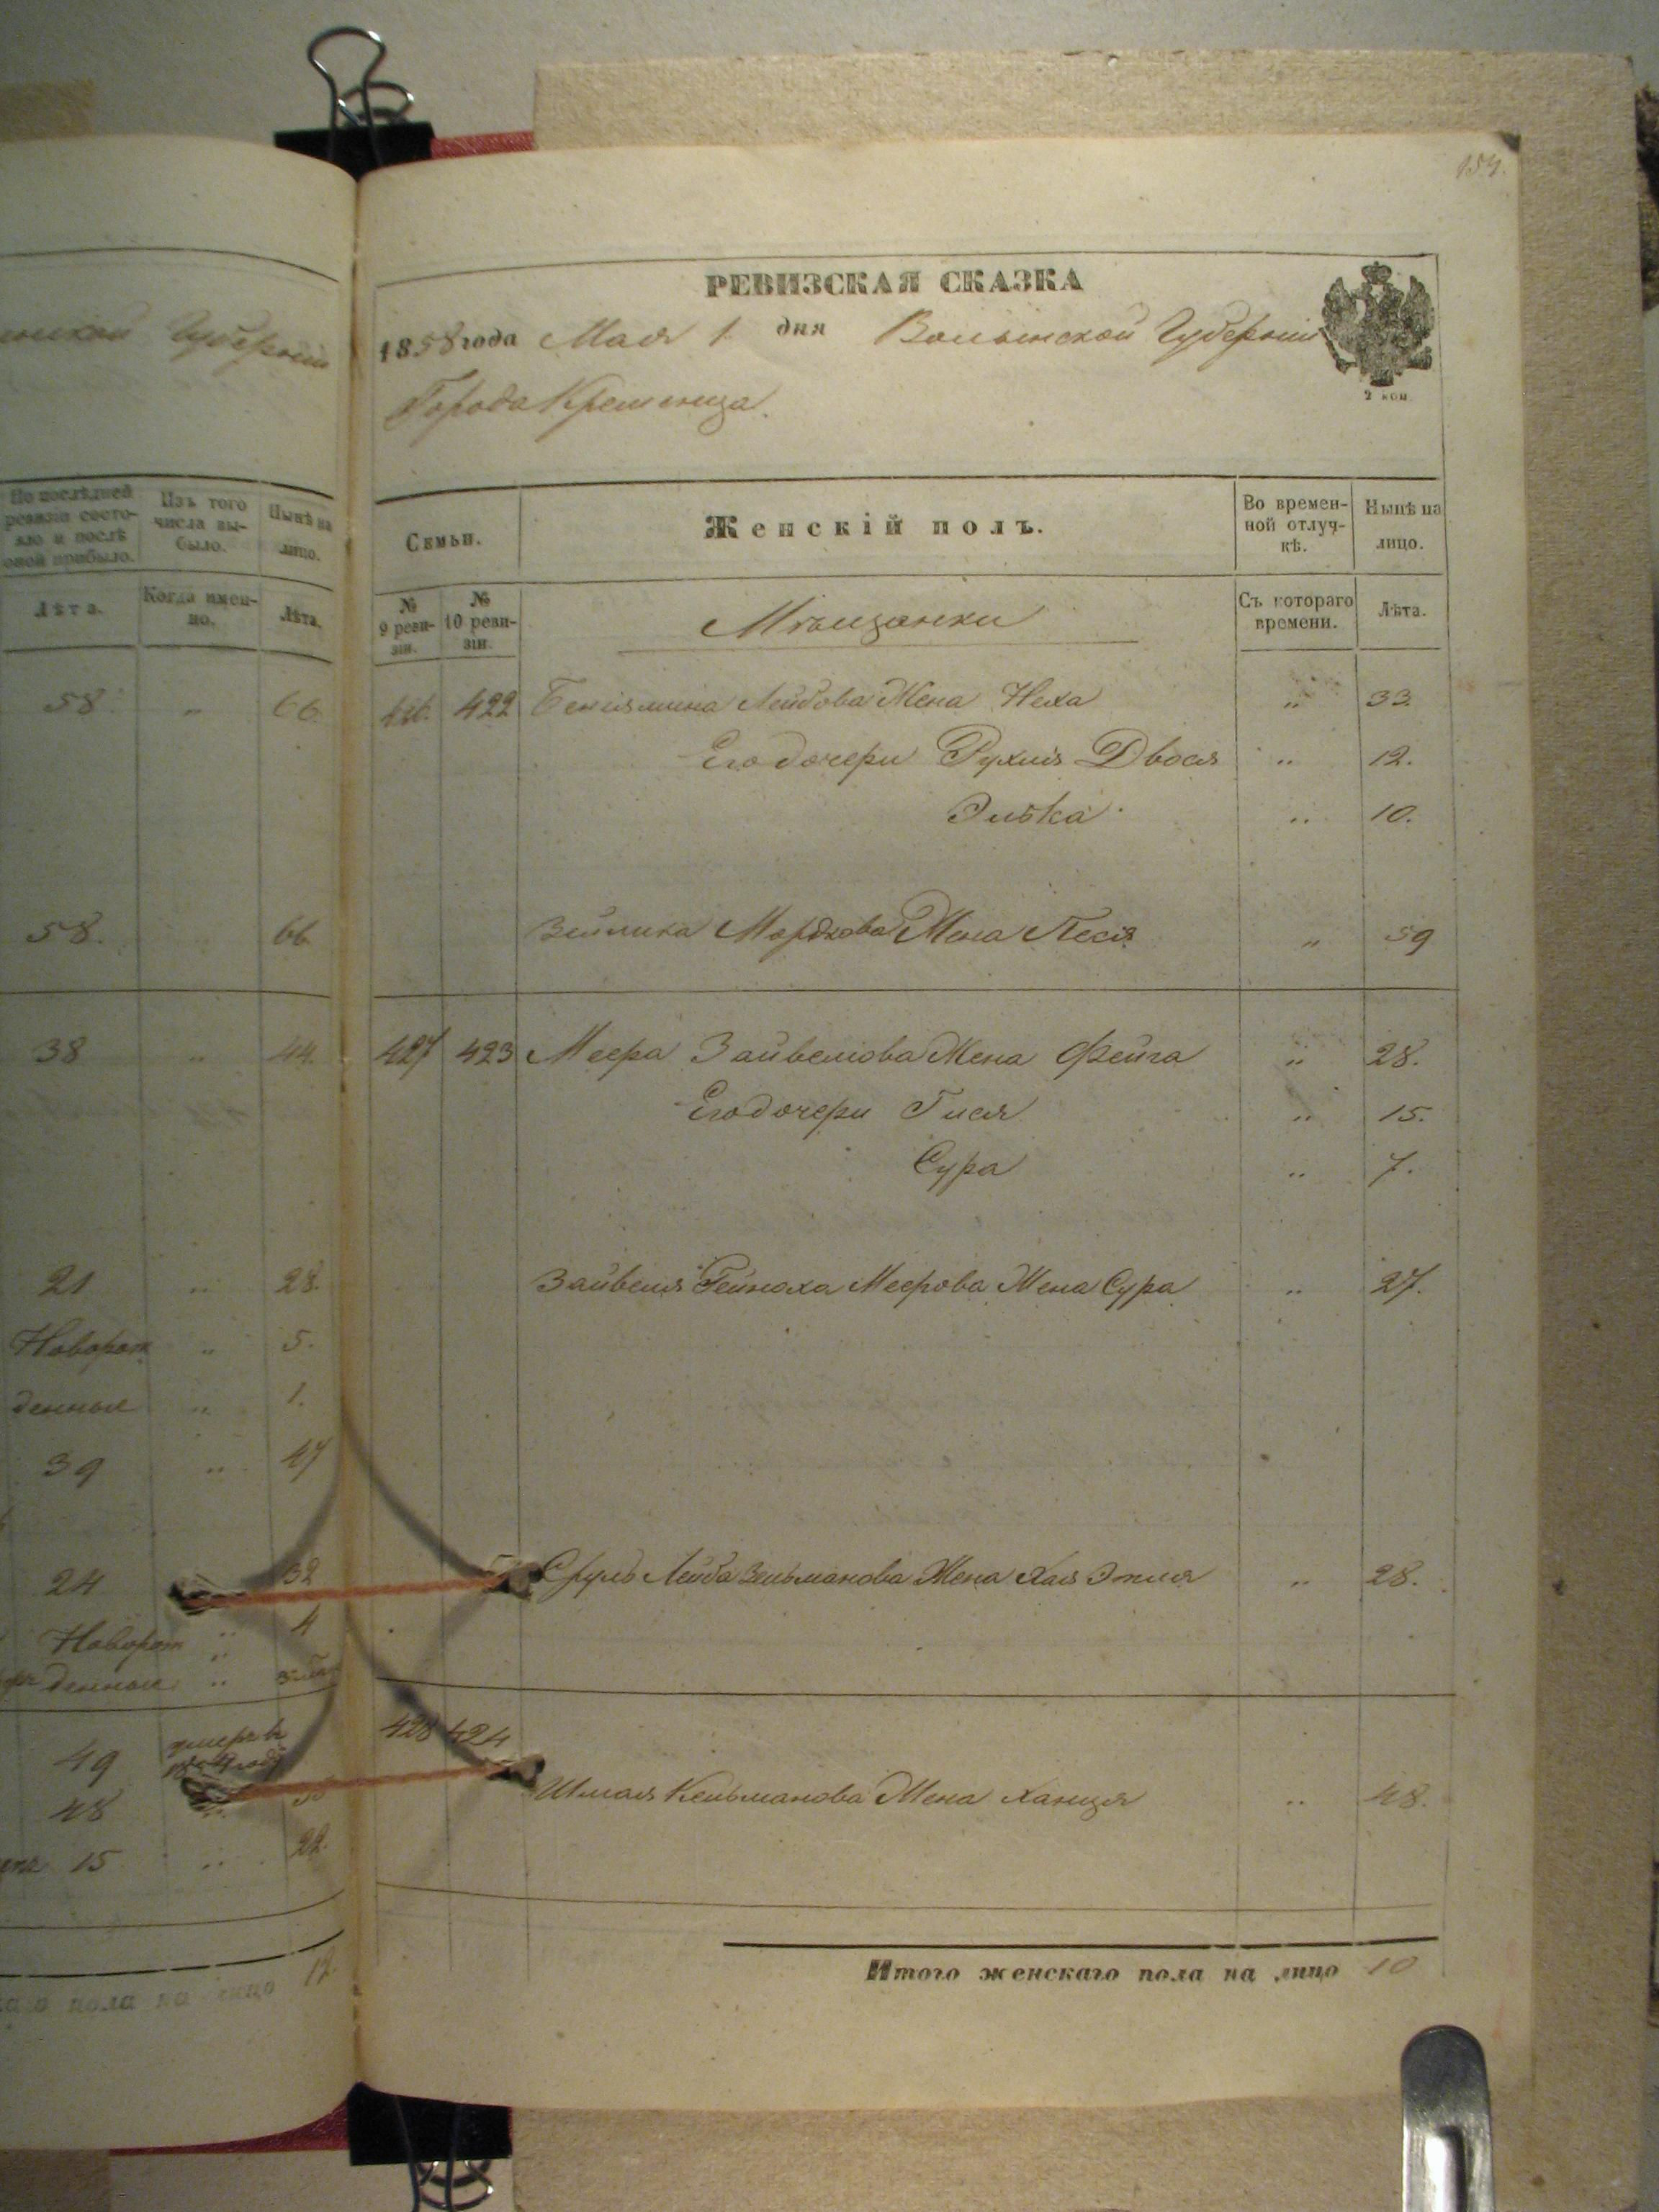 154.
РЕВИЗСКАЯ СКАЗКА
1858 года Мая 1 дня Волынской Губерніи
Города Кременца.
2 коп.
Губерніи
По послѣдней ревизіи состояло и послѣ оной прибыло.
Изъ того числа выбыло.
Нынѣ на лицо.
Лѣта.
Когда именно.
Лѣта.
Семьи.
Женскій полъ.
Во временной отлучкѣ.
Нынѣ на лицо.
№ 9 ревизіи.
№ 10 ревизіи.
Мѣщанки
Съ котораго времени.
Лѣта.
58 „ 66
422 Беніямина Лейбова Жена Неха „ 33.
Его дочери Рухля Двося „ 12.
Элька „ 10.
58. 66
Зейлика Мордкова Жена Песя „ 59
38 „ 44.
427 423 Меера Зайвелова Жена Фейга „ 28.
Его дочери Гися „ 15.
Сура „ 7.
21 „ 28.
Зайвеля Гейноха Меерова Жена Сура „ 27.
Новорож „ 5.
денные „ 1.
39 „ 47
24 32
Сруль Лейба Зельманова Жена Хая Этля „ 28.
Новорож „ 4
денные „
428 424
49 умеръ въ
48 „
Шмая Кельманова Жена Ханця „ 48.
15 „ 22.
пола на лицо 12.
Итого женскаго пола на лицо 10